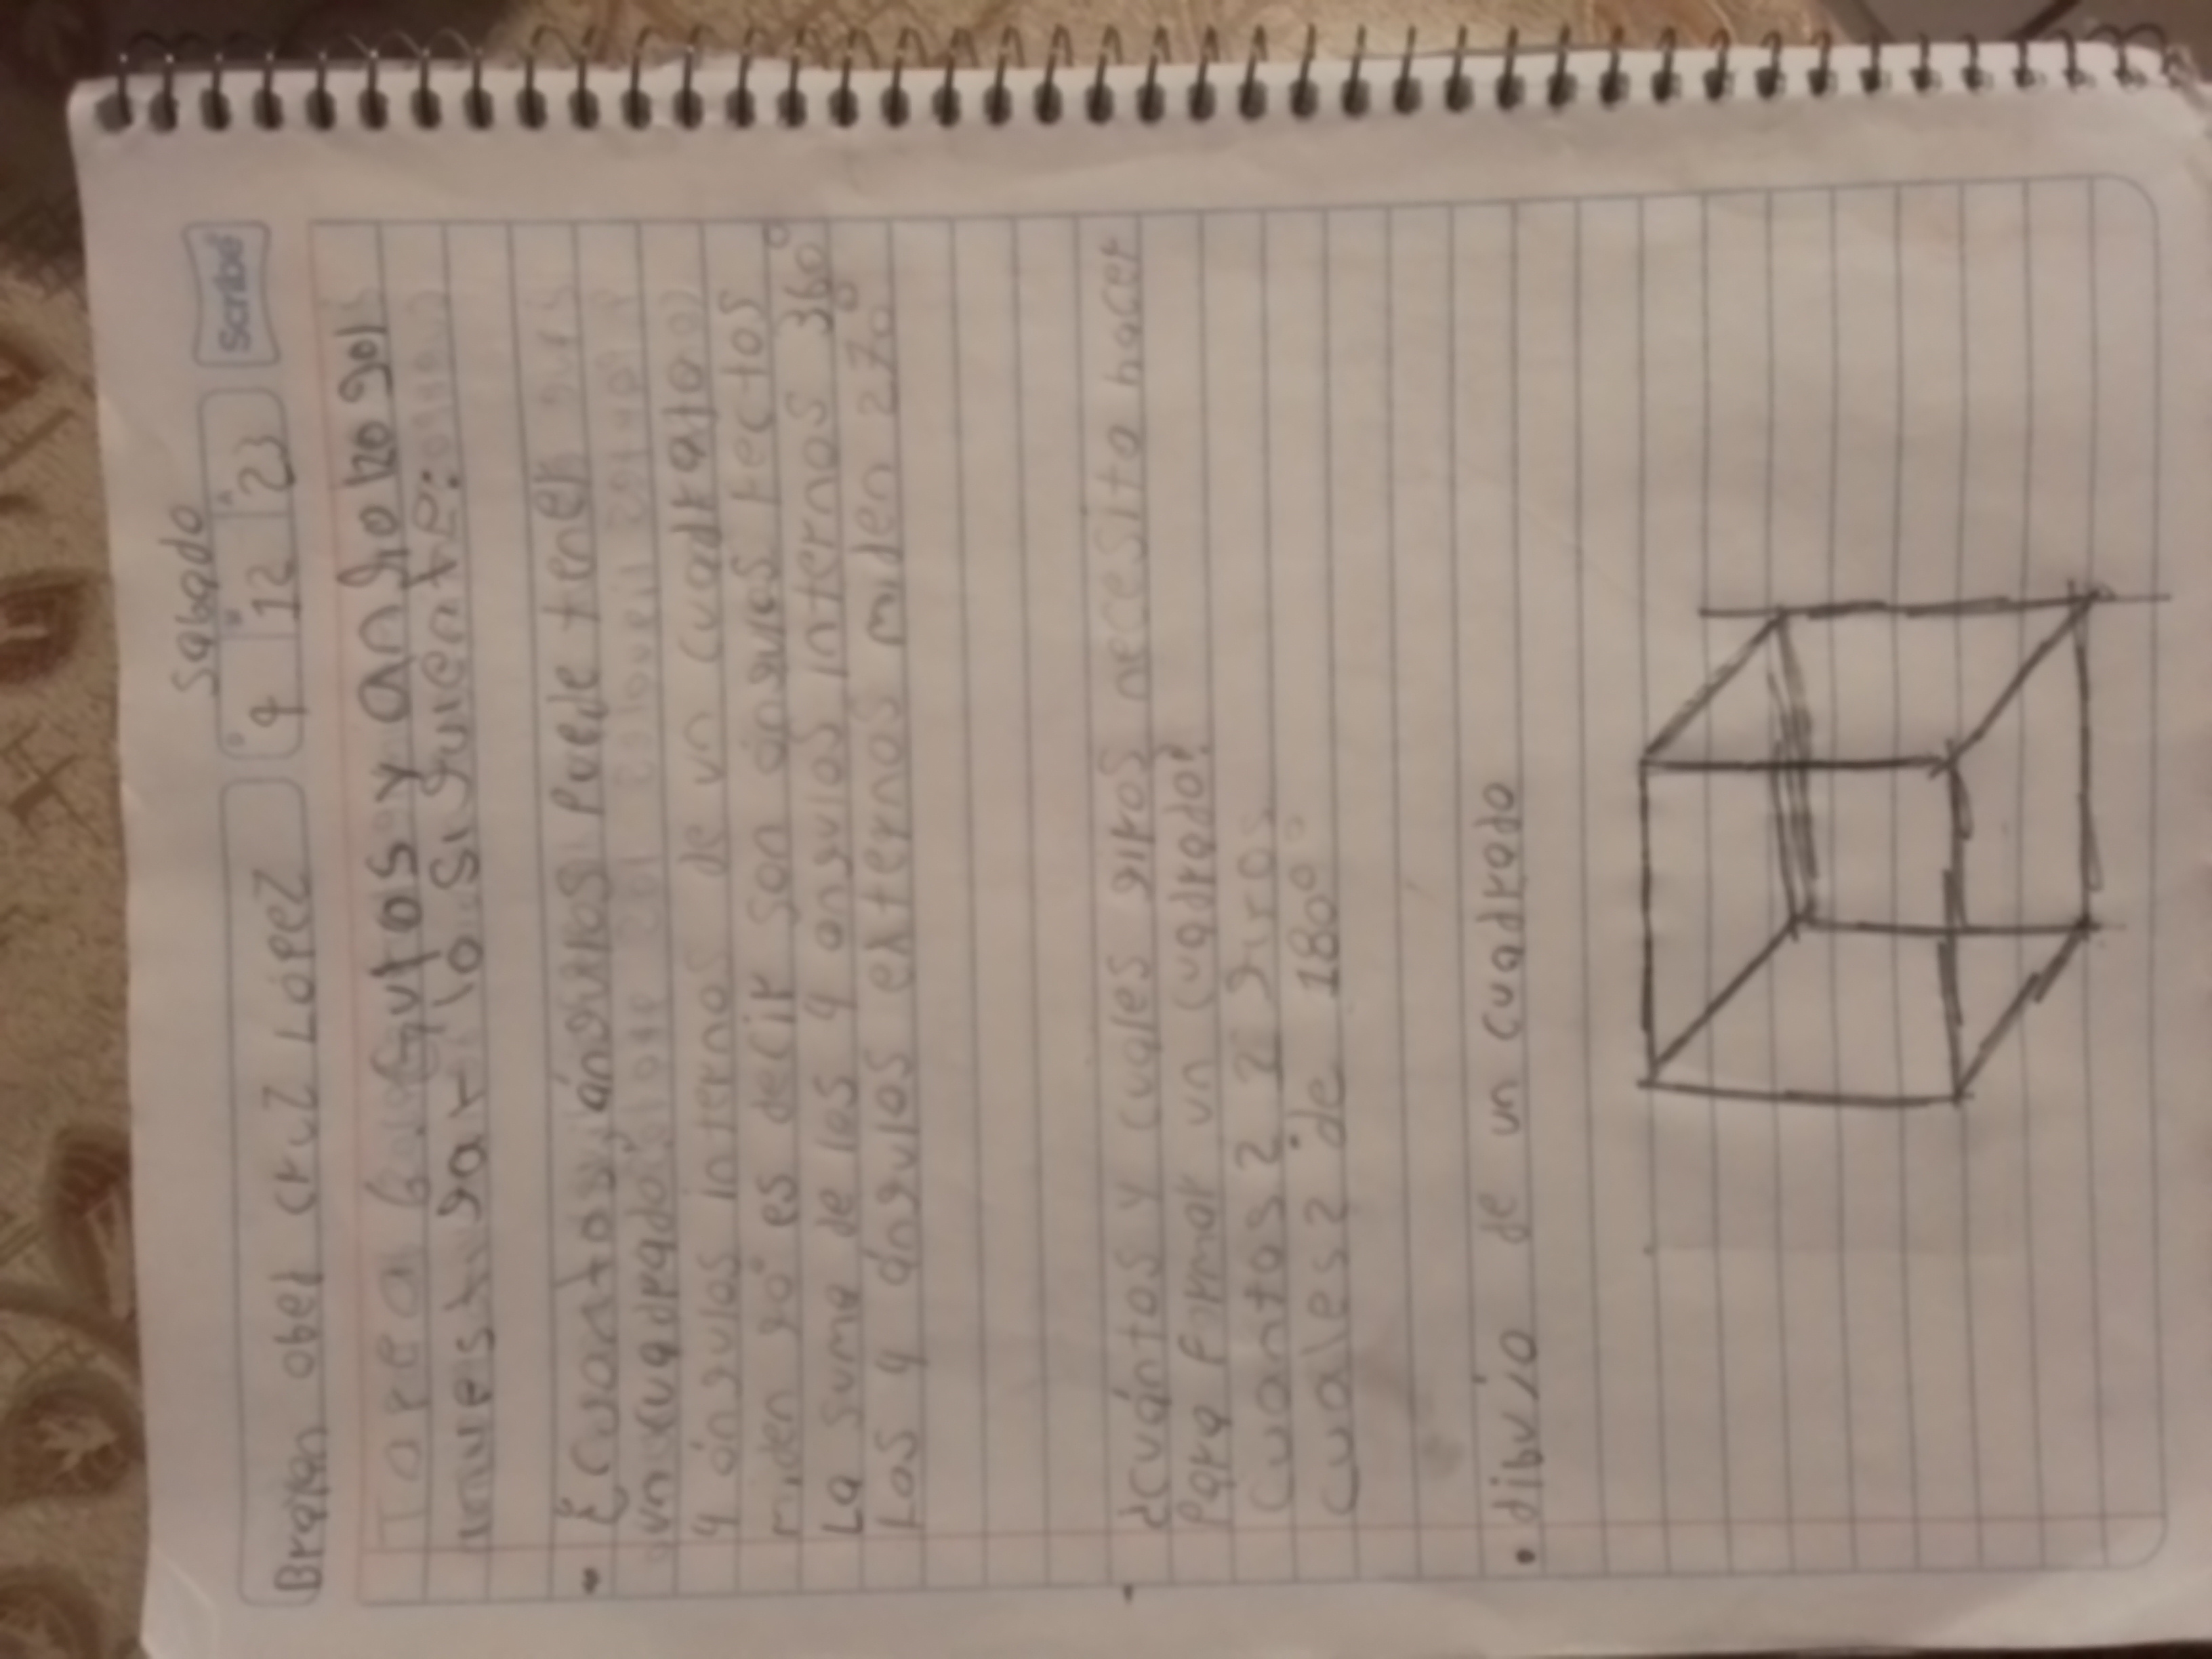 Sabado
Scribe
Brayan obed Cruz López 9 12 23
Tarea 6 y
investigar lo siguiente:
¿Cuantos ángulos puede tener
un cuadrado
4 ángulos internos de un cuadrato
miden 90° es decir son ángulos rectos
La suma de los 4 angulos internos 360°
Los 4 ángulos externos miden 270°
¿cuántos y cuales giros necesito hacer
Para formar un cuadrado?
Cuantos 2 giros
Cuales 2 de 180°
• dibujo de un cuadrado